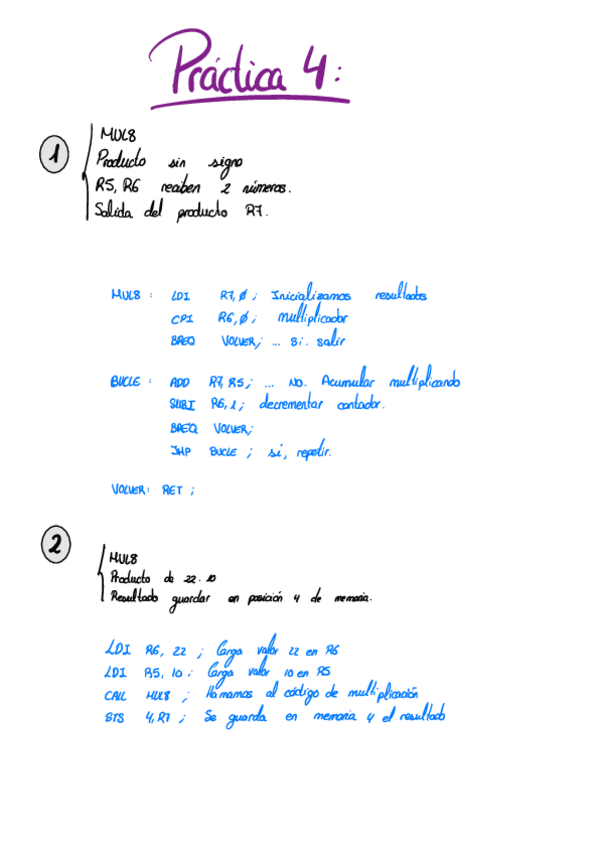 Práctica 4:
1
MUL8
Producto sin signo
R5, R6 reciben 2 números.
Salida del producto R7.
MUL8 : LDI R7, Ø ; Inicializamos resultados
CPI R6, Ø ; multiplicador
BREQ VOLVER; ... Si. salir
BUCLE : ADD R7, R5 ; ... No. Acumular multiplicando
SUBI R6, 1 ; decrementar contador.
BREQ VOLVER;
JMP BUCLE ; si, repetir.
VOLVER: RET ;
2
MUL8
Producto de 22·10
Resultado guardar en posición 4 de memoria.
LDI R6, 22 ; Carga valor 22 en R6
LDI R5, 10 ; Carga valor 10 en R5
CALL MUL8 ; Llamamos al código de multiplicación
STS 4, R7 ; Se guarda en memoria 4 el resultado